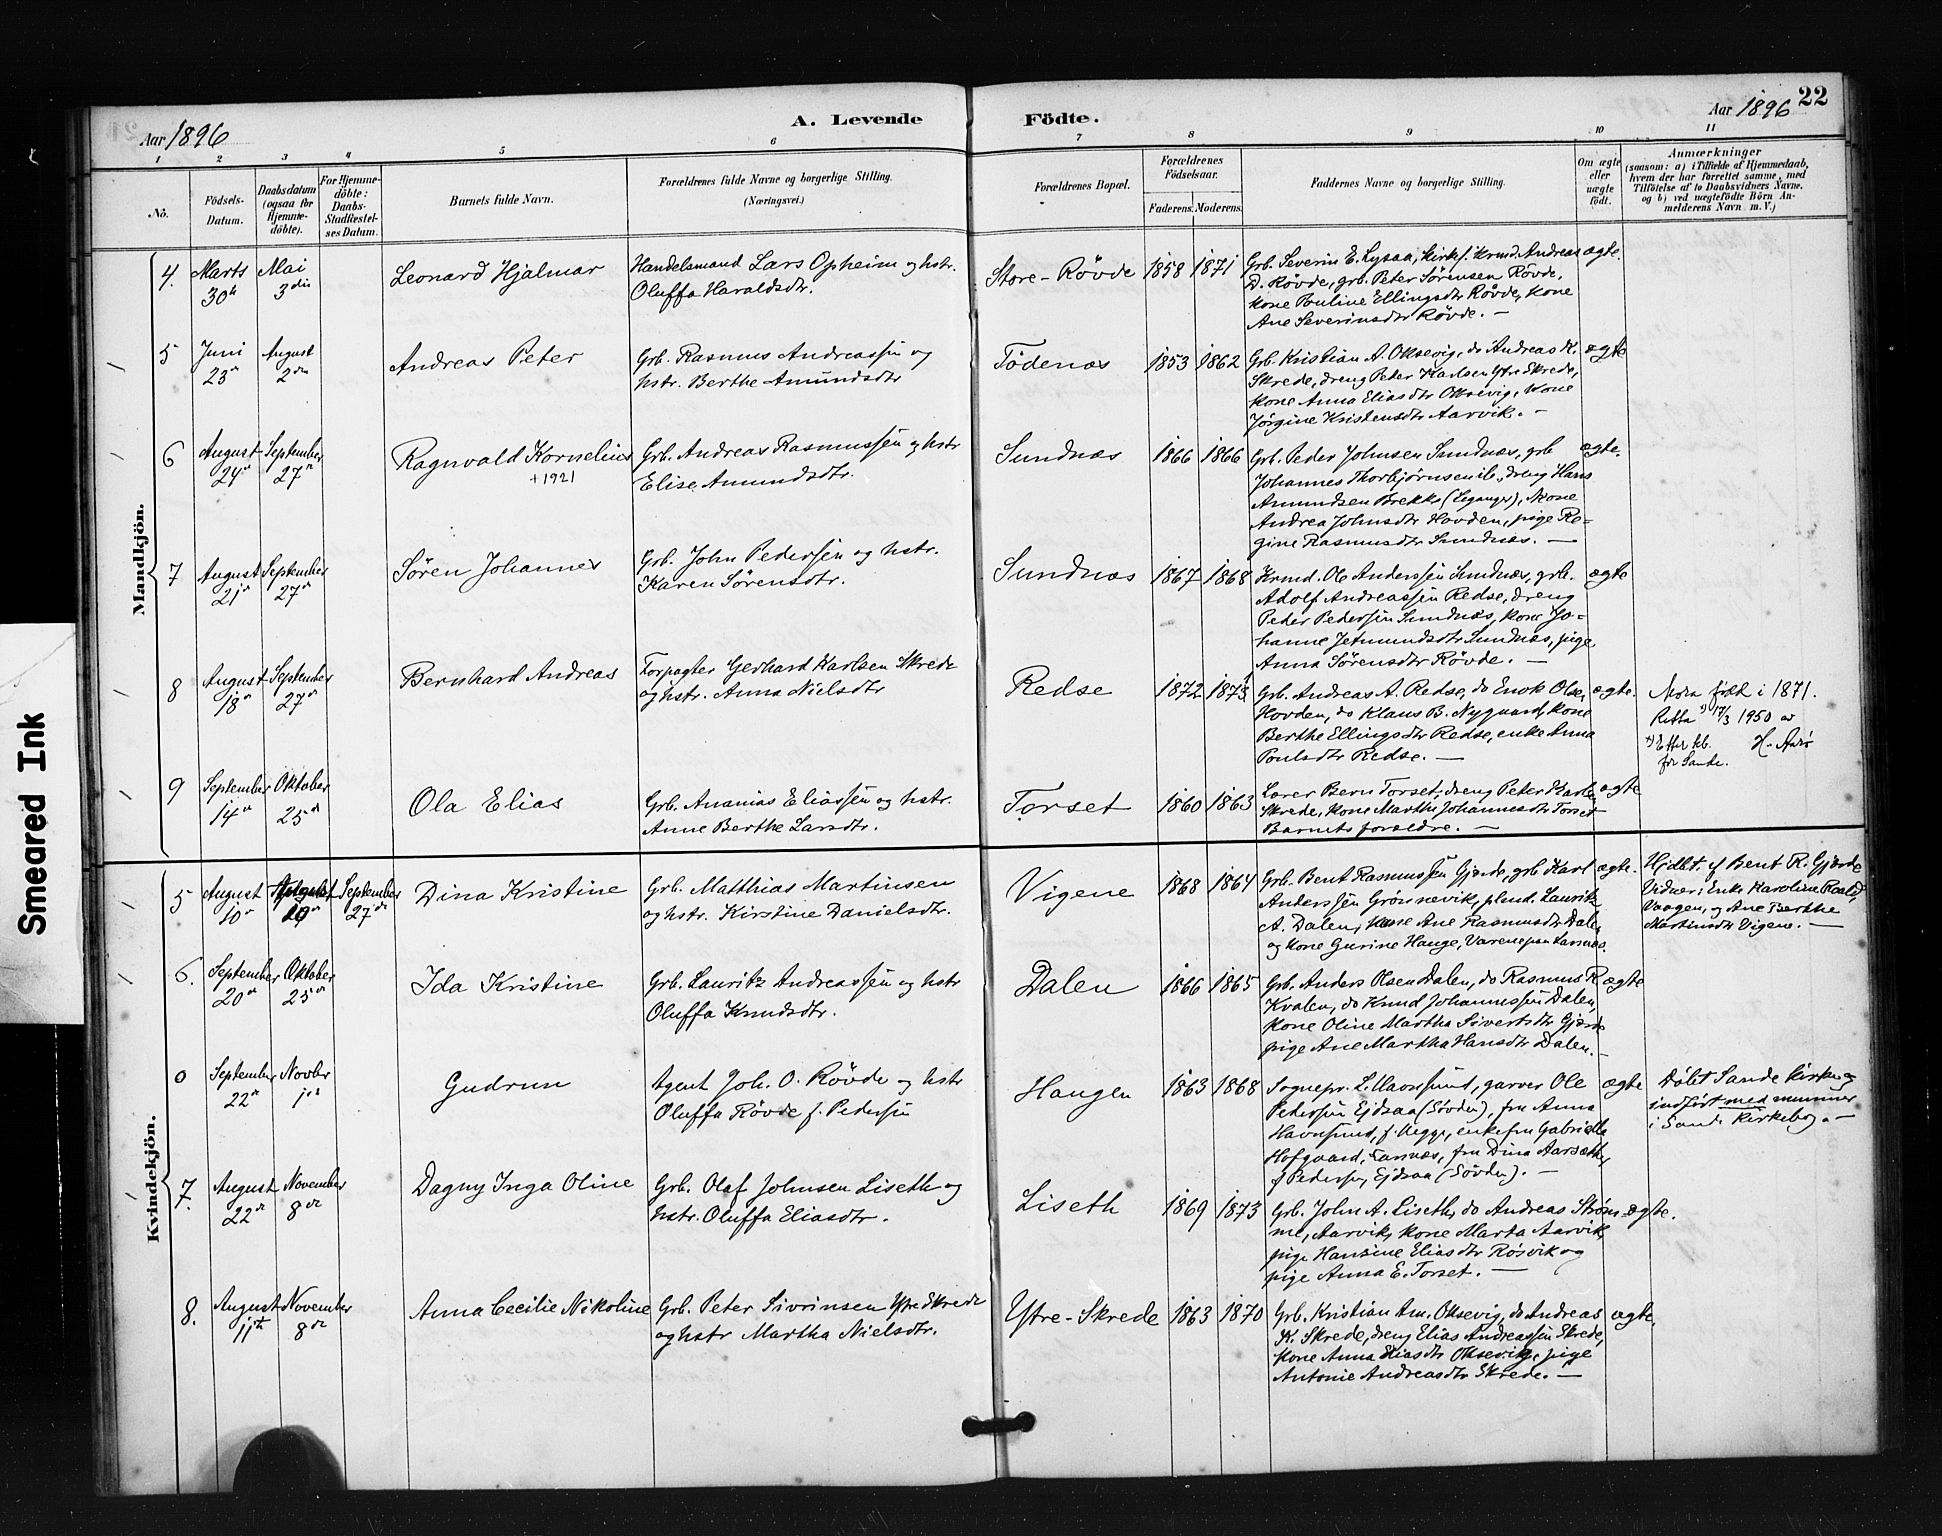 22
Aar 1896
A. Levende Födte.
Aar 1896
1 2 3 4 5 6 7 8 9 10 11
No.
Födsels-Datum.
Daabsdatum (ogsaa for Hjemme-döbte).
For Hjemme-döbte: Daabs-Stadfestel-ses Datum.
Barnets fulde Navn.
Forældrenes fulde Navne og borgerlige Stilling.
(Næringsvei.)
Forældrenes Bopæl.
Forældrenes Födselsaar.
Faderens. Moderens.
Faddernes Navne og borgerlige Stilling.
Om ægte eller uægte födt.
Anmærkninger
(saasom: a) i Tilfælde af Hjemmedaab,
hvem der har forrettet samme, med
Tilföielse af to Daabsvidners Navne,
og b) ved uægtefödte Börn An-
melderens Navn m. V.)
Mandkjön.
4. Marts 30te Mai 3die Leonard Hjalmar
Handelsmand Lars Opheim og hstr.
Oluffa Haraldsdtr.
Store-Røvde 1858 1871
Grb. Severin E. Lysaa, Kirkes. Krmd. Andreas
D. Røvde, grb. Peter Sørensen Røvde,
kone Pauline Ellingsdtr Røvde, kone
Ane Severinsdtr Røvde. —
ægte.
5 Juni 23de August 2den Andreas Peter
Grb. Rasmus Andreassen og
hstr. Berthe Amundsdtr
Tødenæs 1853 1862
Grb. Kristian A. Oksevig, do Andreas K.
Skrede, dreng Peter Karlsen Ytre Skrede,
kone Anna Eliasdtr Oksevig, kone
Jørgine Kristensdtr Aarvik. —
ægte
6 August 24de September 27de Ragnvald Kornelius
+ 1921
Grb. Andreas Rasmussen og hstr
Elise Amundsdtr.
Sundnæs 1866 1866
Grb. Peder Johnsen Sundnæs, grb
Johannes Thorbjørnsen ib., dreng Hans
Amundsen Brekke (Leganger), kone
Andrea Johnsdtr Hovden, pige Re-
gine Rasmusdtr Sundnæs. —
ægte.
7 August 21de September 27de Søren Johannes
Grb. John Pedersen og hstr.
Karen Sørensdtr.
Sundnæs 1867 1868
Krmd. Ole Anderssen Sundnæs, grb.
Adolf Andreassen Redse, dreng
Peder Pedersen Sundnæs, kone Jo-
hanne Jetmundsdtr Sundnæs, pige
Anna Sørensdtr Røvde. —
ægte
8 August 18de September 27de Bernhard Andreas
Forpagter Gerhard Karlsen Skrede
og hstr. Anna Nielsdtr
Redse 1872 1873
Grb. Andreas A. Redse, do Enok Olsen
Hovden, do Klaus B. Nygaard, kone
Berthe Ellingsdtr Redse, enke Anna
Poulsdtr Redse. —
ægte.
Mora født i 1871.
Retta x) 17/3 1950 av
x) Etter kb. H. Aarø
for Sande.
9 September 14de Oktober 25de Ola Elias
Grb. Ananias Eliassen og hstr.
Anne Berthe Larsdtr.
Torset 1860 1863
Lærer Bern Torset, dreng Peter Karlsen
Skrede, kone Marthe Johannesdtr Torset
Barnets forældre. —
ægte
Kvindekjön.
5 August 10de August 10de September 27de Dina Kristine
Grb. Matthias Martinsen
og hstr. Kirstine Danielsdtr.
Vigene 1868 1864
Grb. Bent Rasmussen Gjærde, grb Karl
Anderssen Grønnevik, plend. Lauritz
A. Dalen, kone Ane Rasmusdtr Dalen
og kone Gurine Hauge,
ægte.
Hjdbt. af Bent R. Gjærde
Vidner: Enke Karoline Roald,
Vaagen, og Ane Berthe
Martinsdtr Vigene. —
6. September 20de Oktober 25de Ida Kristine
Grb. Lauritz Andreassen og hstr
Oluffa Knudsdtr.
Dalen 1866 1865
Grb. Anders Olsen Dalen, do Rasmus R.
Kvalen, do Knud Johannessen Dalen,
kone Oline Martha Sivertsdtr Gjærde
pige Ane Martha Hansdtr Dalen. —
ægte
0 September 22de Novbr 1ste Gudrun
Agent Joh. O. Røvde og hstr
Oluffa Røvde f. Pedersen
Haugen 1863 1868
Sognepr. L. Havnsund, garver Ole
Pederssen Ejdsaa (Søvden), fru Anna
Havnsund, f. Aegge, enkefru Gabrielle
Hofgaard, Larsnæs, fru Dina Aarsæther
f. Pedersen, Ejdsaa (Søvden). —
ægte
Døbt Sande kirke og
indført med nummer
i Sande Kirkebog. —
7. August 22de November 8de Dagny Inga Oline
Grb. Olaf Johnsen Liseth og
hstr. Oluffa Eliasdtr.
Liseth 1869 1873
Grb. John A. Liseth, do Andreas Strøm-
me, Aarvik, kone Marta Aarvik,
pige Hansine Eliasdtr Røsvik og
pige Anna E. Torset. —
ægte.
8. August 11te November 8de Anna Cecilie Nikoline
Grb. Peter Sivrinsen Ytre Skrede
og hstr Martha Nielsdtr.
Ytre-Skrede 1863 1870
Grb. Kristian Am. Oksevig, do Andreas
K. Skrede, dreng Elias Andreassen Skrede,
kone Anna Eliasdtr Oksevik, pige
Antonie Andreasdtr Skrede. —
ægte.
Smeared Ink